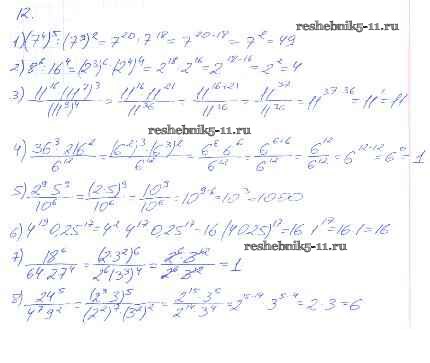 12.
reshebnik5-11.ru
1) (7⁴)⁵ : (7⁹)² = 7²⁰ : 7¹⁸ = 7²⁰⁻¹⁸ = 7² = 49
2) 8⁶ : 16⁴ = (2³)⁶ : (2⁴)⁴ = 2¹⁸ : 2¹⁶ = 2¹⁸⁻¹⁶ = 2² = 4
3) 11¹⁶ (11⁷)³ / (11⁹)⁴ = 11¹⁶ 11²¹ / 11³⁶ = 11¹⁶⁺²¹ / 11³⁶ = 11³⁷ / 11³⁶ = 11³⁷⁻³⁶ = 11¹ = 11
reshebnik5-11.ru
4) 36³ · 216² / 6¹² = (6²)³ (6³)² / 6¹² = 6⁶ 6⁶ / 6¹² = 6⁶⁺⁶ / 6¹² = 6¹² / 6¹² = 6¹²⁻¹² = 6⁰ = 1
5) 2⁹ 5⁹ / 10⁶ = (2·5)⁹ / 10⁶ = 10⁹ / 10⁶ = 10⁹⁻⁶ = 10³ = 1000
6) 4¹⁹ 0,25¹⁷ = 4² 4¹⁷ 0,25¹⁷ = 16 (4 0,25)¹⁷ = 16 1¹⁷ = 16 1 = 16
7) 18⁶ / 64 27⁴ = (2 3²)⁶ / 2⁶ (3³)⁴ = 2⁶ 3¹² / 2⁶ 3¹² = 1
8) 24⁵ / 4⁷ 9² = (2³ 3)⁵ / (2²)⁷ (3²)² = 2¹⁵ 3⁵ / 2¹⁴ 3⁴ = 2¹⁵⁻¹⁴ 3⁵⁻⁴ = 2 · 3 = 6
reshebnik5-11.ru